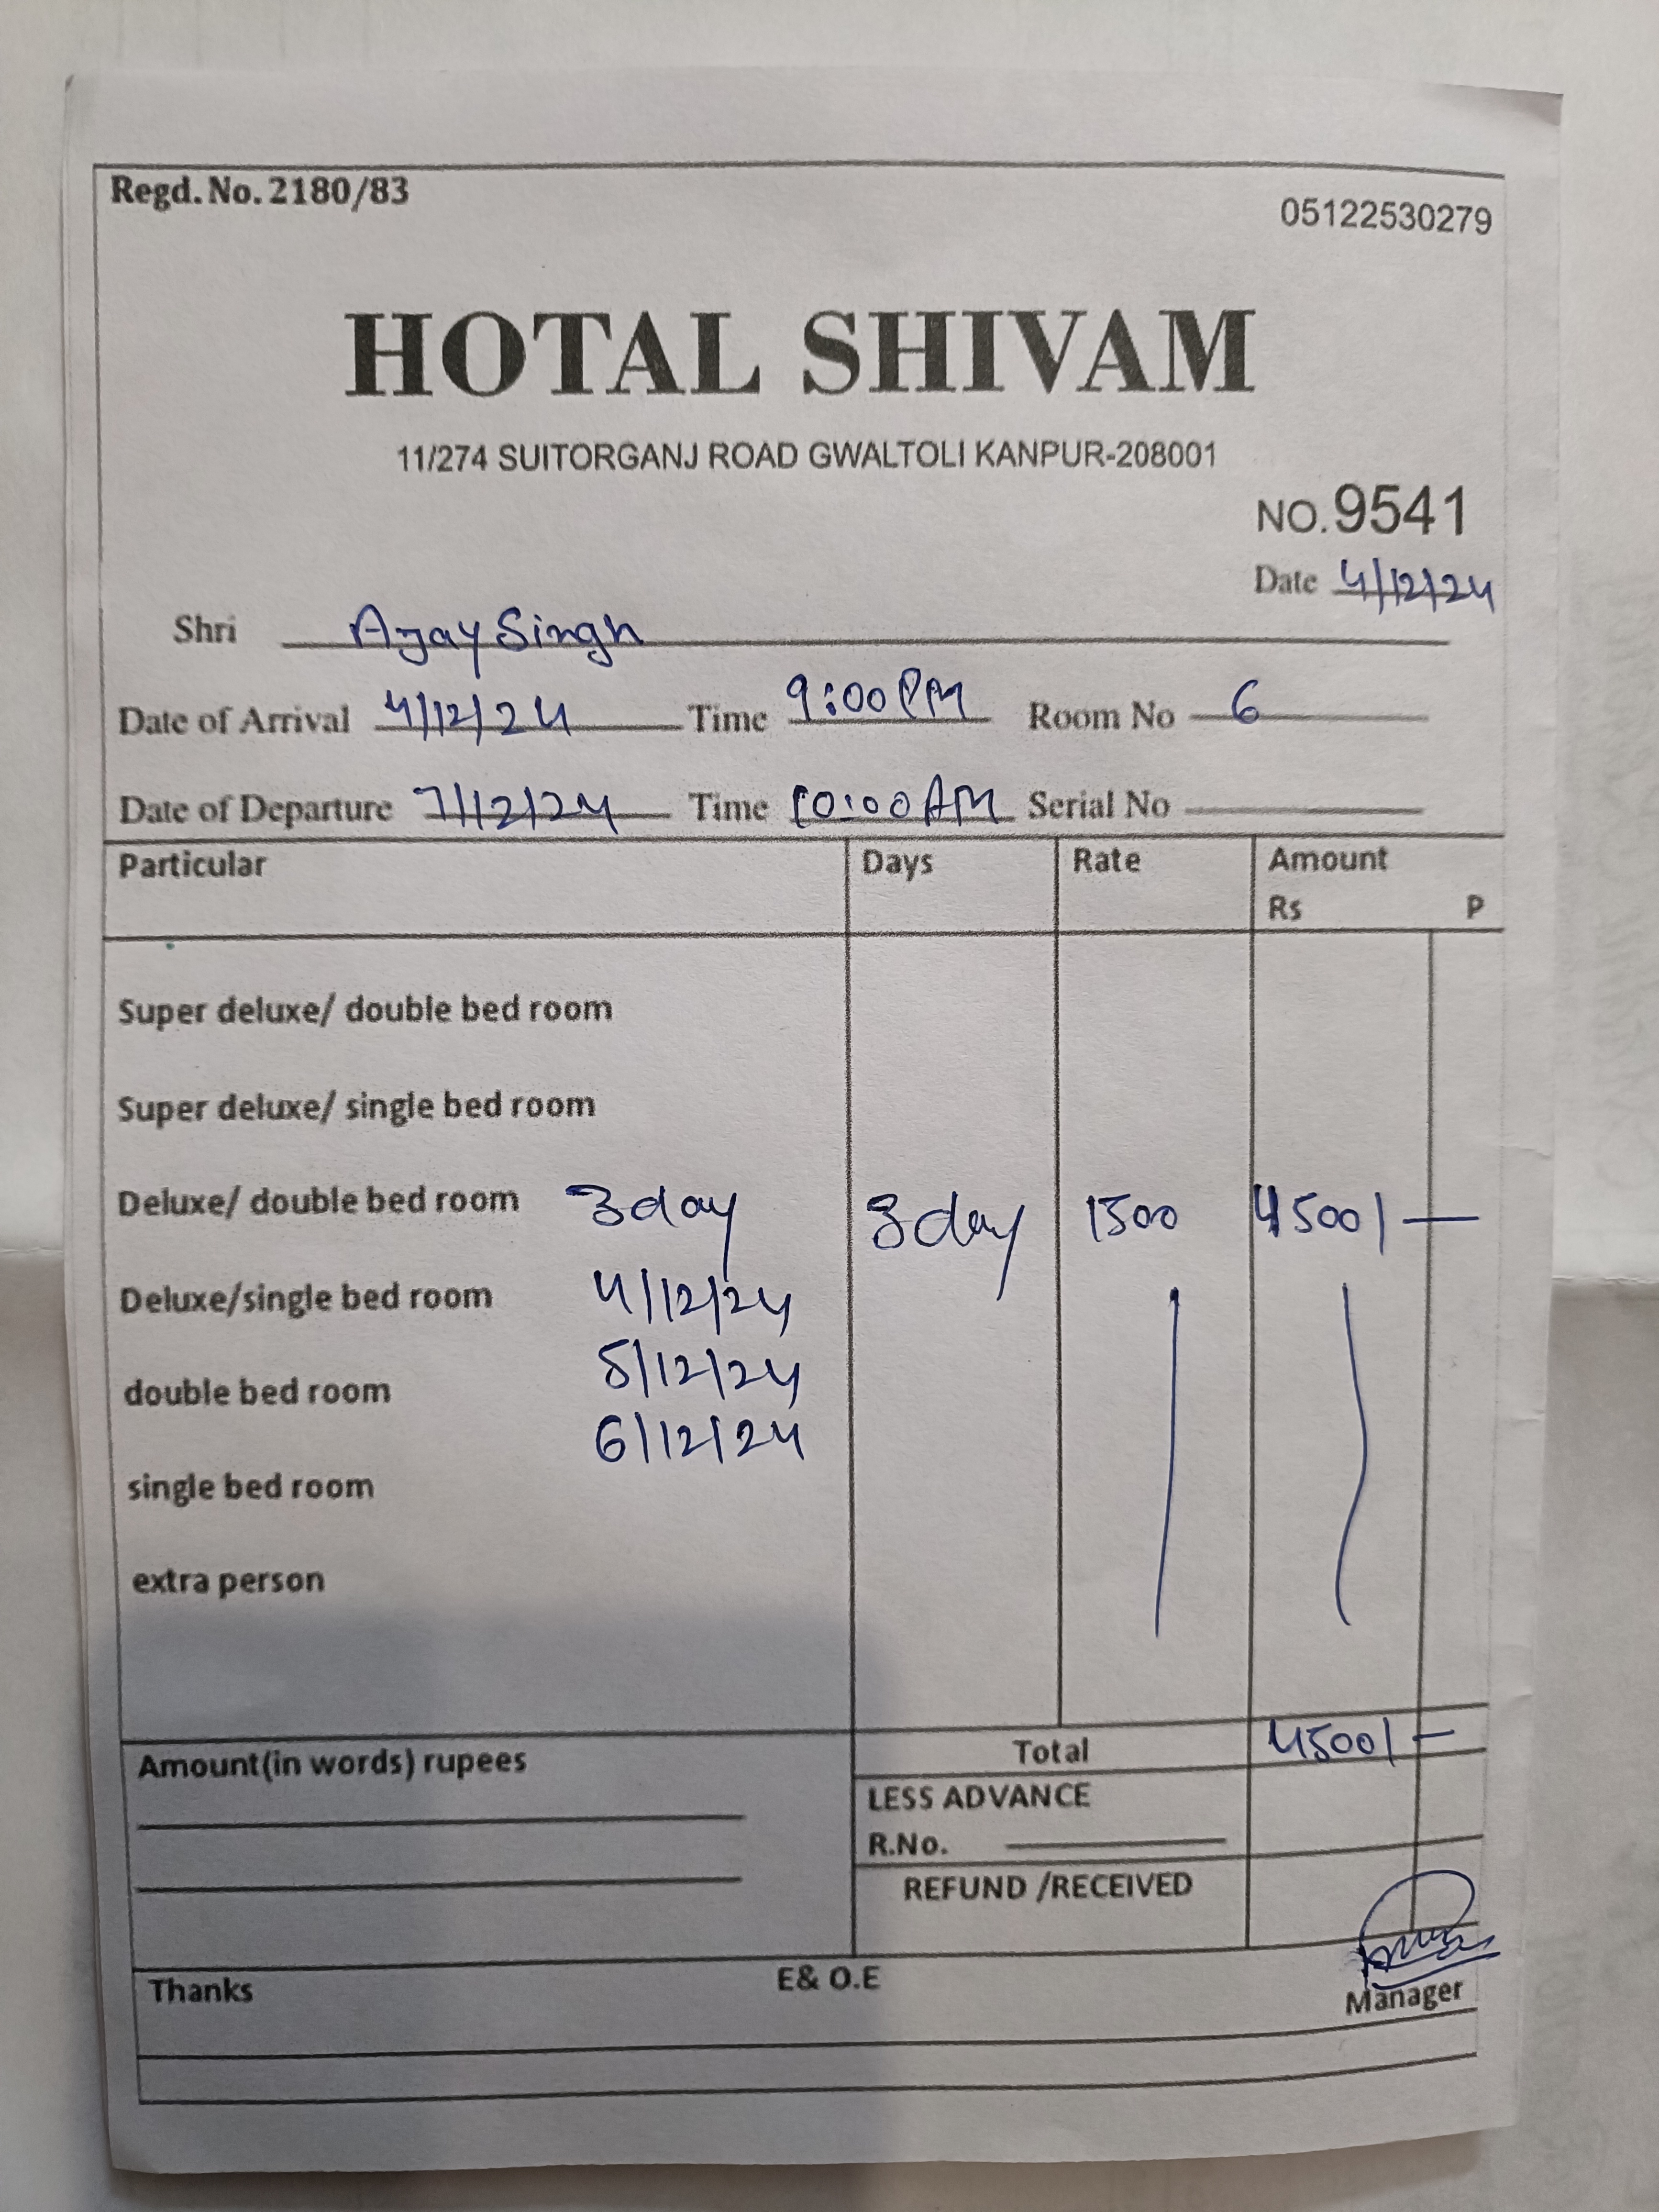 Regd. No. 2180/83
05122530279
HOTAL SHIVAM
11/274 SUITORGANJ ROAD GWALTOLI KANPUR-208001
NO.9541
Date 4/12/24
Shri Ajay Singh
Date of Arrival 4/12/24 Time 9:00 PM Room No 6
Date of Departure 7/12/24 Time 10:00 AM Serial No
Particular Days Rate Amount
Rs P
Super deluxe/ double bed room
Super deluxe/ single bed room
Deluxe/ double bed room 3 day 3 day 1500 4500/-
Deluxe/single bed room 4/12/24
5/12/24
double bed room
6/12/24
single bed room
extra person
Total 4500/-
Amount(in words) rupees
LESS ADVANCE
R.No.
REFUND /RECEIVED
Thanks E& O.E Manager